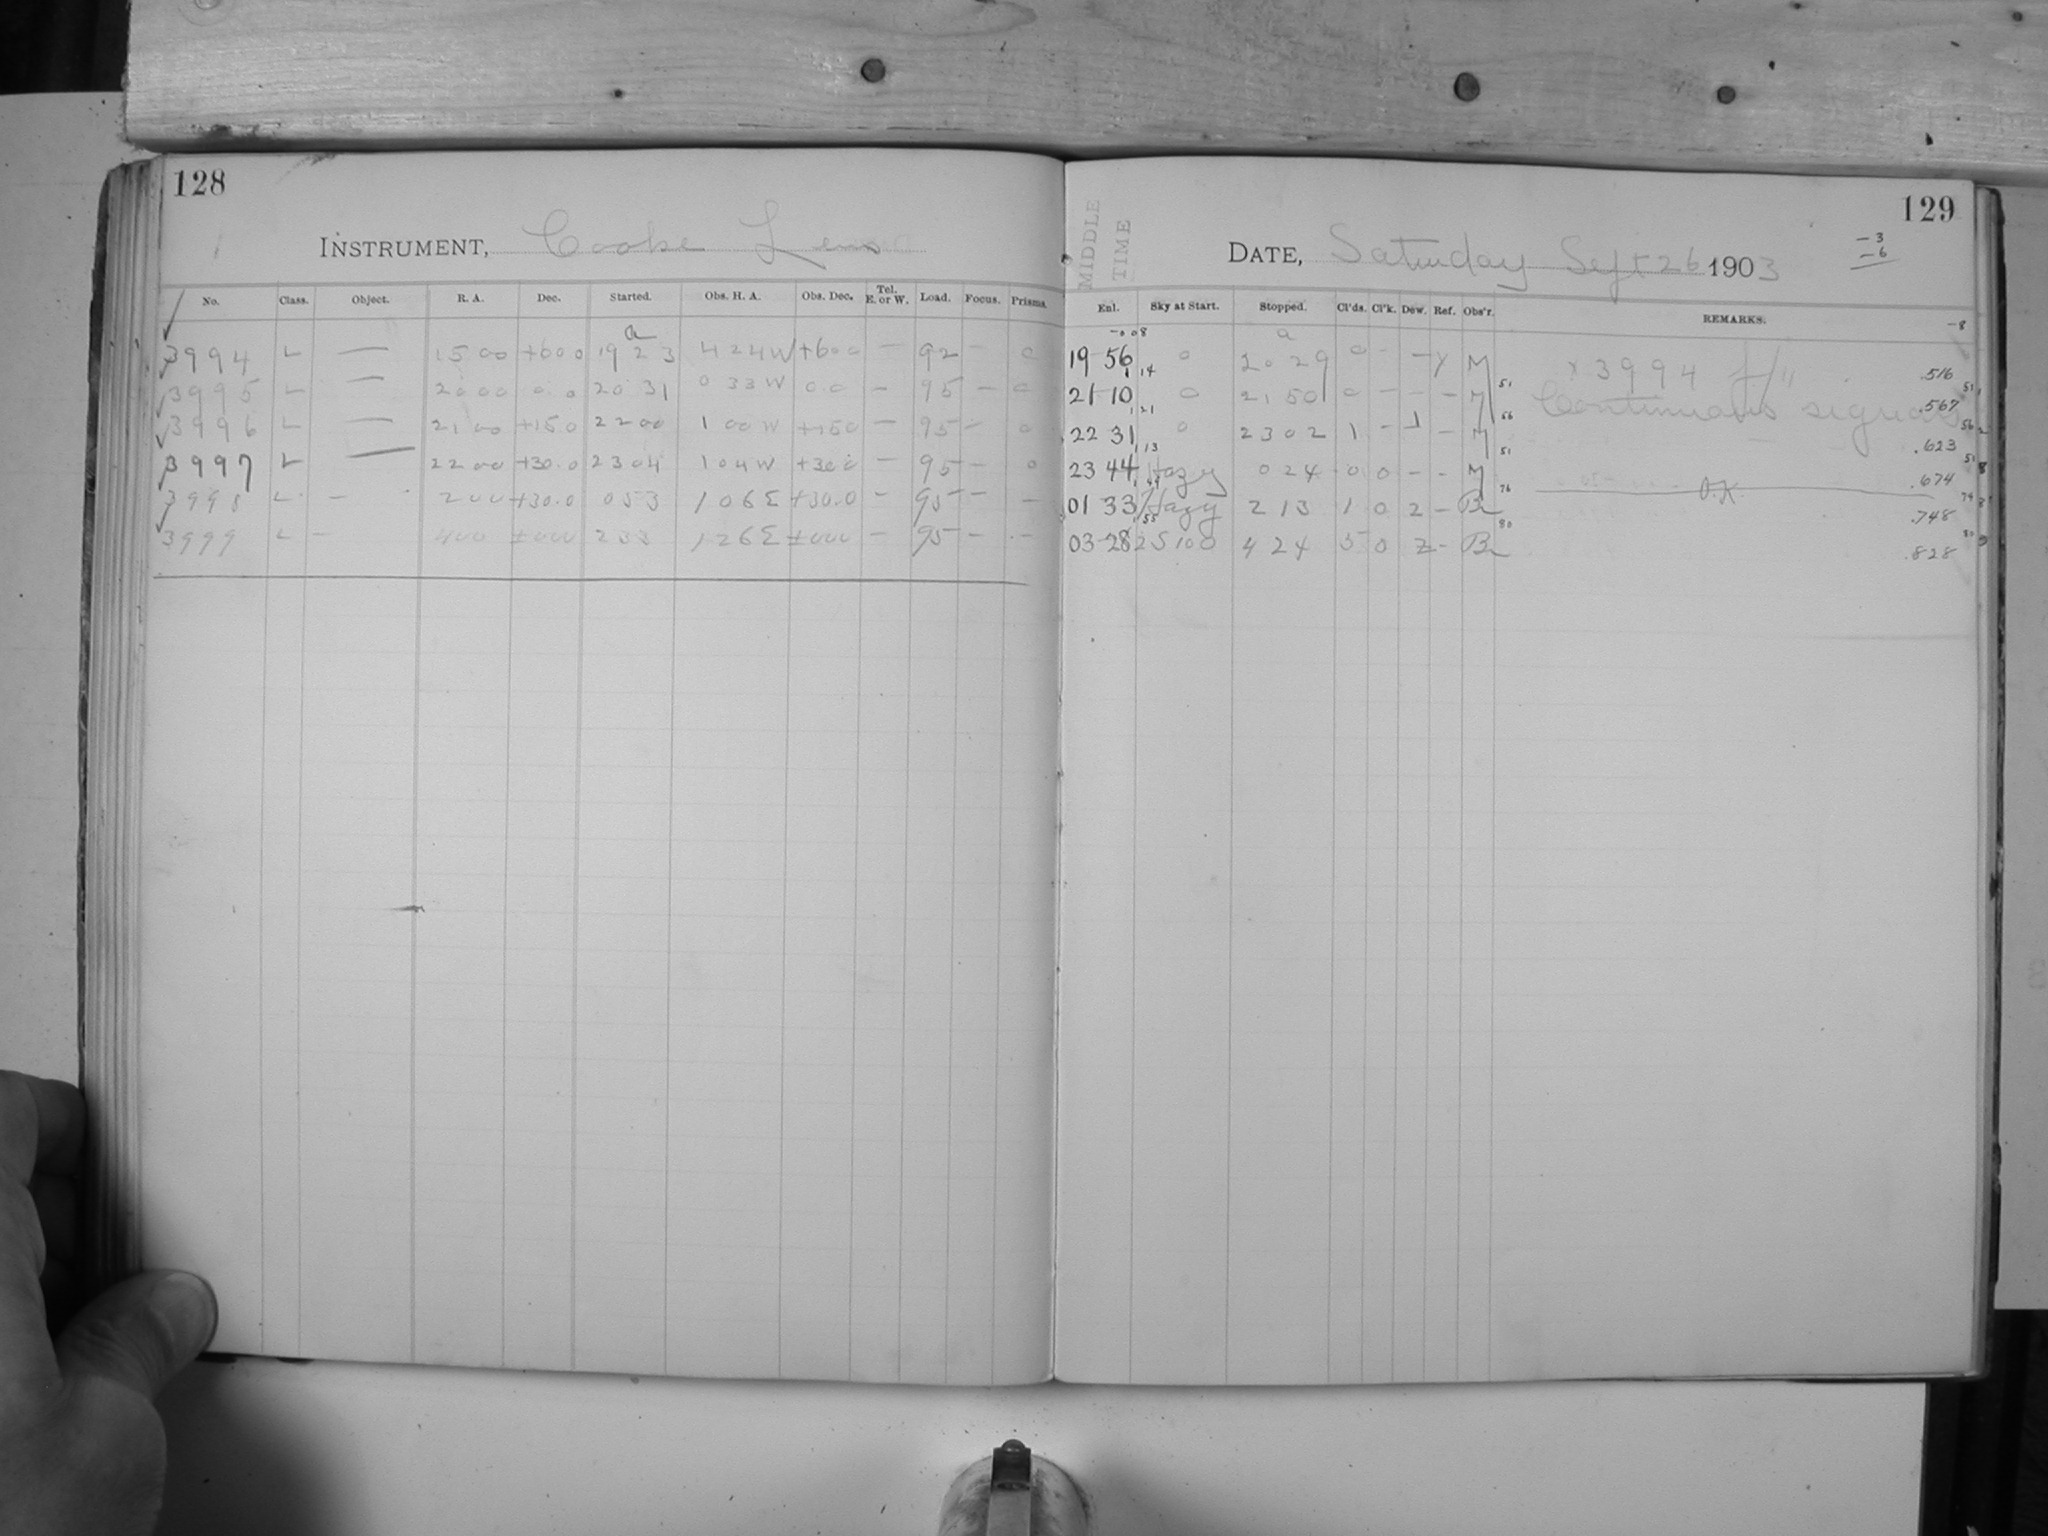 128
INSTRUMENT, Cooke Lens
No. Class. Object. R. A. Dec. Started. Obs. H. A. Obs. Dec. Tel. E. or W. Load. Focus. Prisms.
a
3994 L — 15 00 +60 0 19 23 4 24 W +60 0 — 92 — 0
3995 L — 20 00 0.0 20 31 0 33 W 0.0 — 95 — 0
3996 L — 21 00 +15 0 22 00 1 00 W +15 0 — 95 — 0
3997 L — 22 00 +30.0 23 04 1 04 W +30 0 — 95 — 0
3998 L — 2 00 +30.0 0 53 1 06 E +30.0 — 95 — —
3999 L — 4 00 ±000 2 33 1 26 E ±000 — 95 — —
129
MIDDLE TIME
DATE, Saturday Sept 26 1903
-3
-6
Enl. Sky at Start. Stopped. Cl'ds. Cl'k. Dew. Ref. Obs'r. REMARKS.
-0.08 a -8
19 56 0 20 29 0 - — y M x 3994 .516
1 14 51 51
21 10 0 21 50 0 — — — M Continuous signals .567
1 21 56 56
22 31 0 23 02 1 - 1 — M .623
1 13 51 51
23 44 Hazy 0 24 0 0 - - M O.K .674
01 33 Hazy 2 13 1 0 2 — B .748
1 55 80 80
03 28 2S100 4 24 5 0 2 - B .828